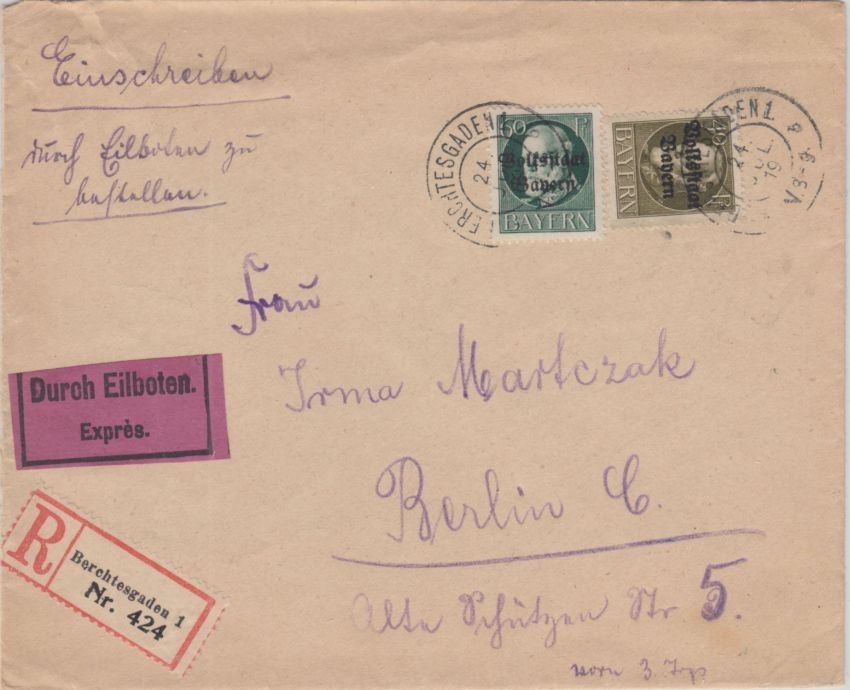 Einschreiben
durch Eilboten zu
bestellen.
BERCHTESGADEN 1.
24.
60 Pf
Volksstaat
Bayern
BAYERN
40 Pf
Volksstaat
Bayern
BAYERN
24 JUL. 19
V 8-9.
Frau
Irma Martczak
Durch Eilboten.
Exprès.
Berlin C.
R
Berchtesgaden 1
Nr. 424
Alte Schützen Str 5.
vorn 3. Trp